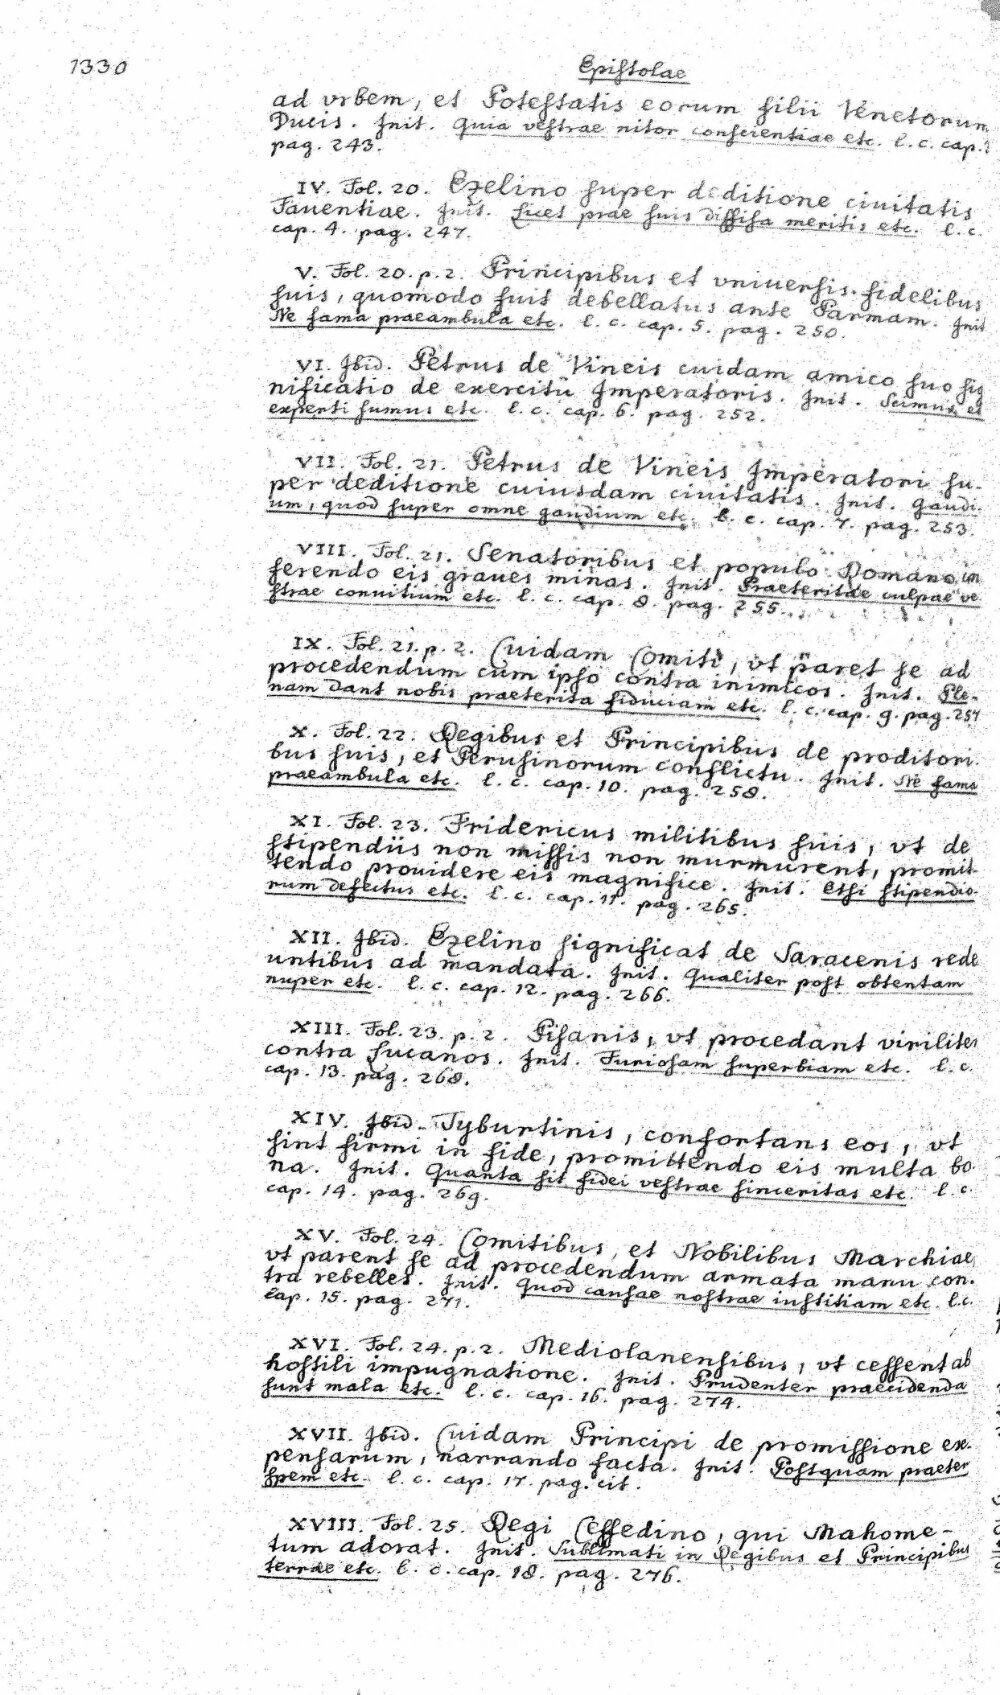 1330
Epistolae
ad vrbem, et Potestatis eorum filii Venetorum
Ducis. Init. Quia vestrae nitor conscientiae etc. l. c. cap.
pag. 243.
IV. Fol. 20. Ezelino super deditione ciuitatis
Fauentiae. Init. Licet prae suis diffisa meritis etc. l. c.
cap. 4. pag. 247.
V. Fol. 20. p. 2. Principibus et vniuersis fidelibus
suis, quomodo fuit debellatus ante Parmam. Init
Ne fama praeambula etc. l. c. cap. 5. pag. 250.
VI. Ibid. Petrus de Vineis cuidam amico suo sig
nificatio de exercitu Imperatoris. Init. Scimus et
experti sumus etc. l. c. cap. 6. pag. 252.
VII. Fol. 21. Petrus de Vineis Imperatori su-
per deditione cuiusdam ciuitatis. Init. Gaudi-
um, quod super omne gaudium etc. l. c. cap. 7. pag. 253.
VIII. Fol. 21. Senatoribus et populo Romano in
ferendo eis graues minas. Init. Praeteritae culpae ve
strae conuitium etc. l. c. cap. 8. pag. 255.
IX. Fol. 21. p. 2. Cuidam Comiti, vt paret se ad
procedendum cum ipso contra inimicos. Init. Ple-
nam dant nobis praeterita fiduciam etc. l. c. cap. 9. pag. 257
X. Fol. 22. Regibus et Principibus de proditori-
bus suis, et Perusinorum conflictu. Init. Ne fama
praeambula etc. l. c. cap. 10. pag. 258.
XI. Fol. 23. Fridericus militibus suis, vt de
stipendiis non missis non murmurent, promit-
tendo prouidere eis magnifice. Init. Etsi stipendio-
rum defectus etc. l. c. cap. 11. pag. 265.
XII. Ibid. Ezelino significat de Saracenis rede
untibus ad mandata. Init. Qualiter post obtentam
nuper etc. l. c. cap. 12. pag. 266.
XIII. Fol. 23. p. 2. Pisanis, vt procedant viriliter
contra Lucanos. Init. Furiosam superbiam etc. l. c.
cap. 13. pag. 268.
XIV. Ibid. Tyburtinis, confortans eos, vt
sint firmi in fide, promittendo eis multa bo
na. Init. Quanta sit fidei vestrae sinceritas etc. l. c.
cap. 14. pag. 269.
XV. Fol. 24. Comitibus, et Nobilibus Marchiae,
vt parent se ad procedendum armata manu con-
tra rebelles. Init. Quod causae nostrae iustitiam etc. l. c.
cap. 15. pag. 271.
XVI. Fol. 24. p. 2. Mediolanensibus, vt cessent ab
hostili impugnatione. Init. Prudenter praecidenda
sunt mala etc. l. c. cap. 16. pag. 274.
XVII. Ibid. Cuidam Principi de promissione ex-
pensarum, narrando facta. Init. Postquam praeter
spem etc. l. c. cap. 17. pag. cit.
XVIII. Fol. 25. Regi Ceffedino, qui Mahome-
tum adorat. Init. Sublimati in Regibus et Principibus
terrae etc. l. c. cap. 18. pag. 276.